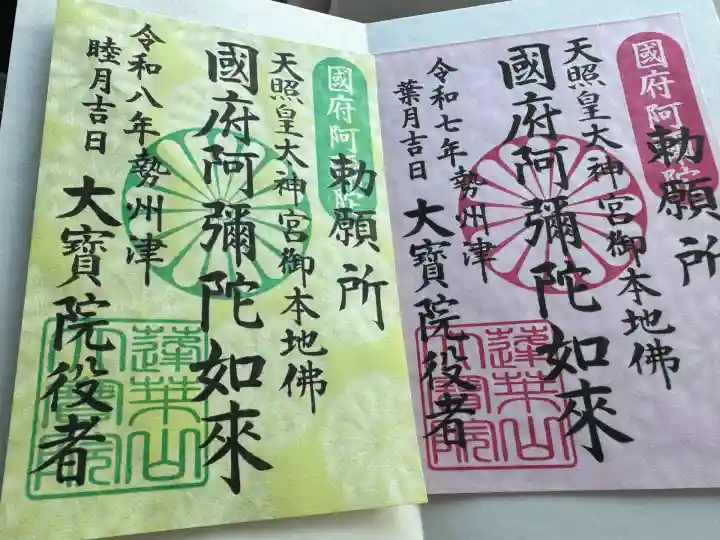 國府阿彌陀
勅願所
天照皇大神宮御本地佛
國府阿彌陀如來
勢州津
大寶院役者
令和七年
葉月吉日
蓮華山
大寶院
國府阿彌陀
勅願所
天照皇大神宮御本地佛
國府阿彌陀如來
勢州津
大寶院役者
令和八年
睦月吉日
蓮華山
大寶院